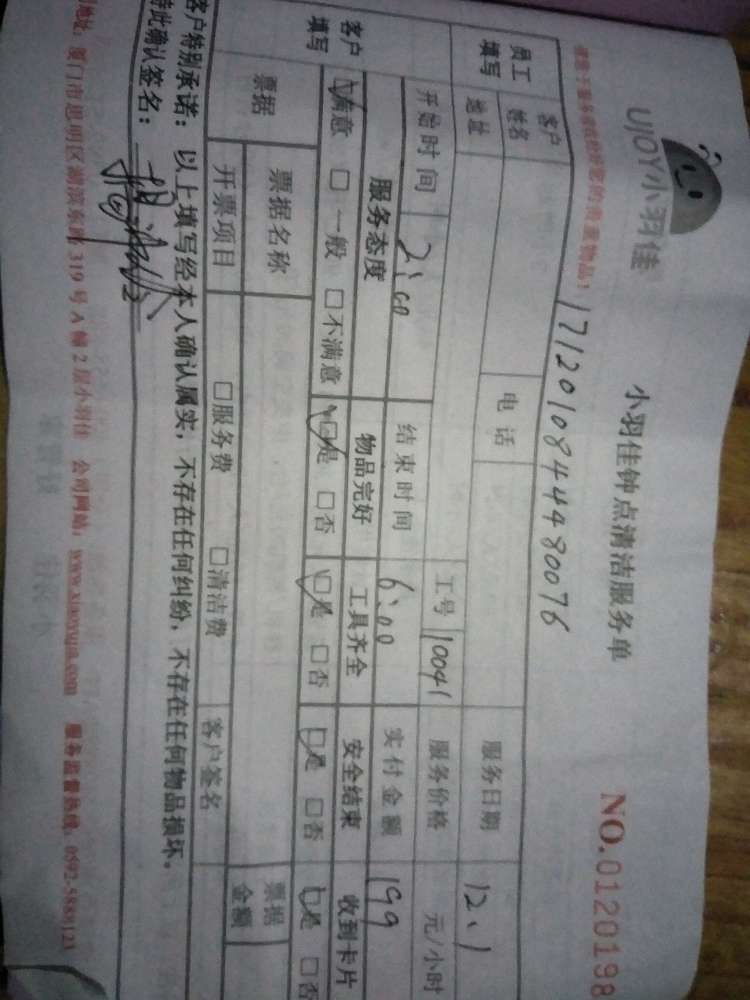 UJOY小羽佳
小羽佳钟点清洁服务单
NO.0120198
17120108444980076
员工填写
客户姓名
电话
服务日期
12.1
地址
工号
10041
服务价格
元/小时
开始时间
2:00
结束时间
6:00
实付金额
199
客户填写
服务态度
物品完好
工具齐全
安全结束
收到卡片
满意 □一般 □不满意
□是 □否
□是 □否
□是 □否
□是 □否
票据
票据名称
票据金额
开票项目
□服务费 □清洁费
客户签名
客户特别承诺:以上填写经本人确认属实,不存在任何纠纷,不存在任何物品损坏。
特此确认签名:
地址:厦门市思明区湖滨东路319号A幢2层小羽佳 公司网站:www.xiaoyujia.com 服务监督热线:0592-5888123